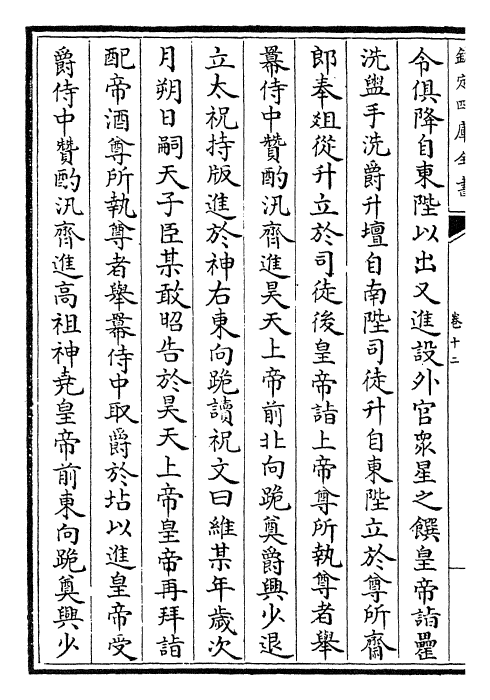 欽定四庫全書
卷十二
令俱降自東陛以出又進設外官眾星之饌皇帝詣罍
洗盥手洗爵升壇自南陛司徒升自東陛立於尊所齋
郎奉俎從升立於司徒後皇帝詣上帝尊所執尊者舉
冪侍中贊酌汎齊進昊天上帝前北向跪奠爵興少退
立太祝持版進於神右東向跪讀祝文曰維某年歲次
月朔日嗣天子臣某敢昭告於昊天上帝皇帝再拜詣
配帝酒尊所執尊者舉冪侍中取爵於坫以進皇帝受
爵侍中贊酌汎齊進高祖神堯皇帝前東向跪奠興少